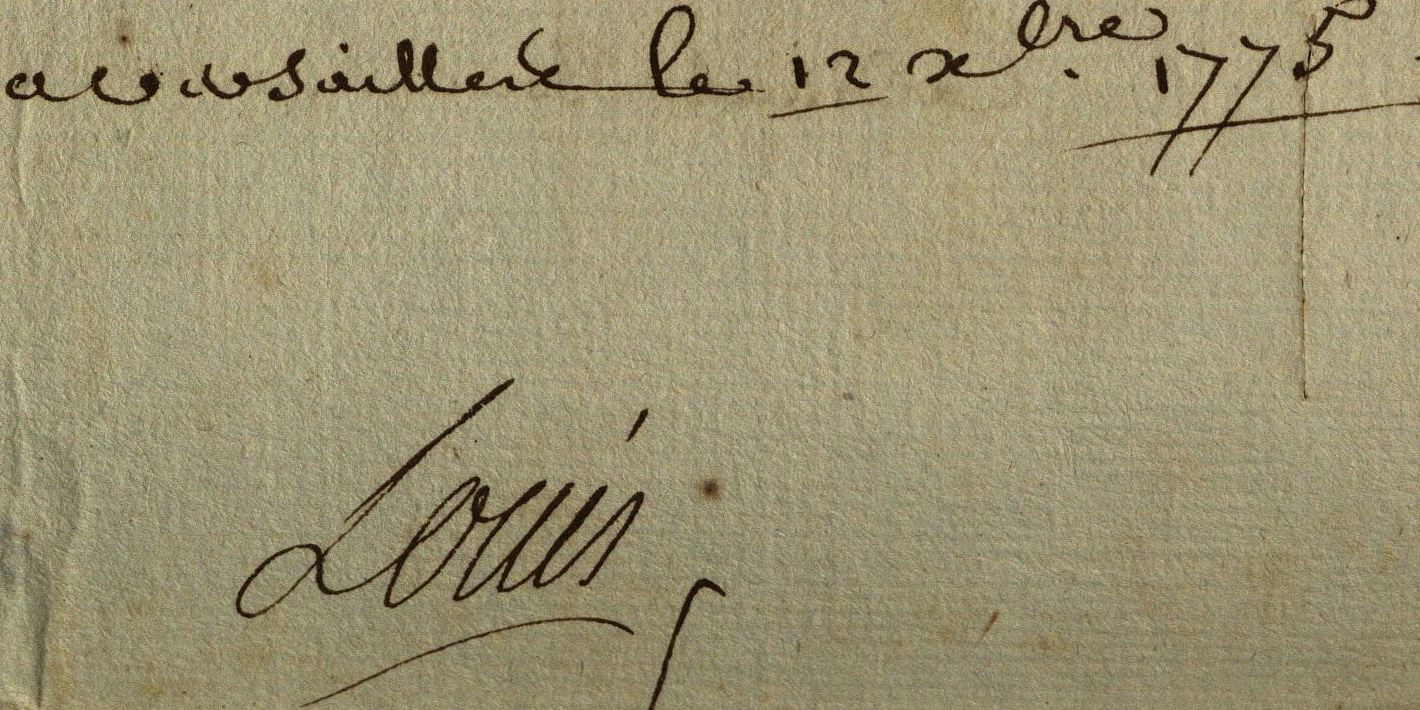 a versailles le 12 xbre. 1775.
Louis